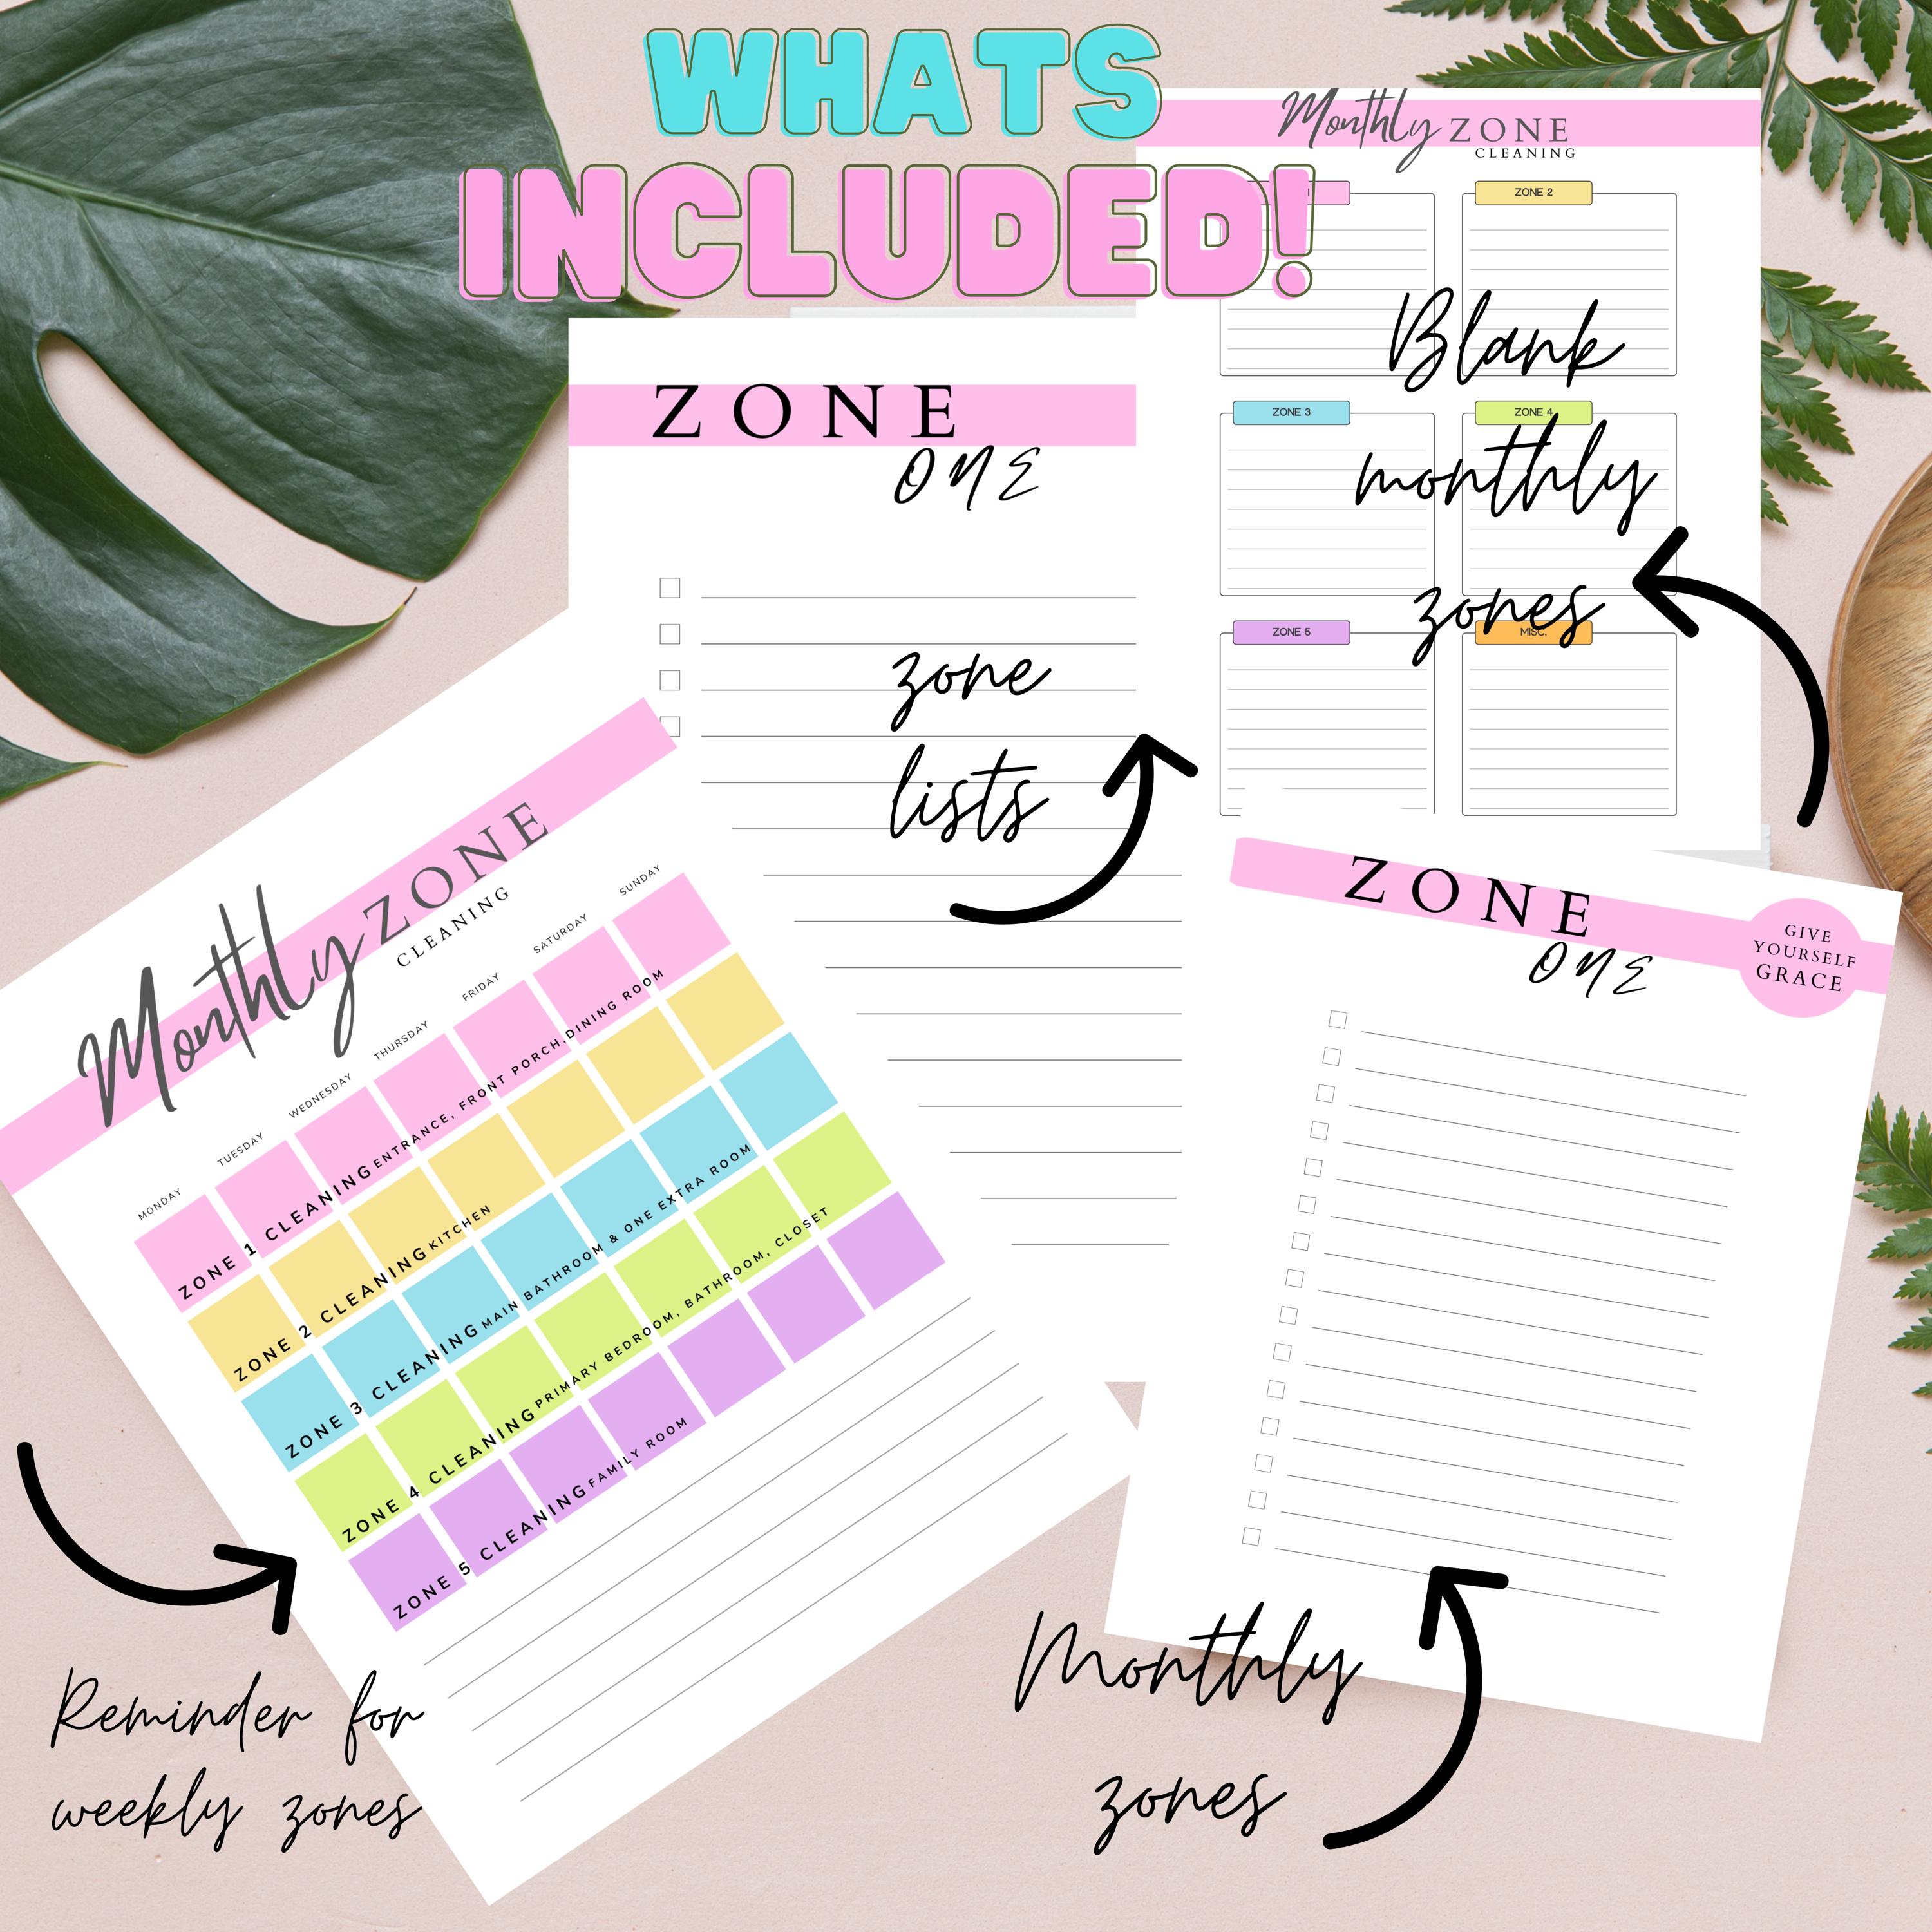 WHATS
INCLUDED!
Monthly ZONE
CLEANING
ZONE 2
ZONE 3
ZONE 4
ZONE 5
MISC.
Blank
monthly
zones
ZONE
ONE
zone
lists
Monthly ZONE
CLEANING
MONDAY
TUESDAY
WEDNESDAY
THURSDAY
FRIDAY
SATURDAY
SUNDAY
ZONE 1 CLEANING ENTRANCE, FRONT PORCH, DINING ROOM
ZONE 2 CLEANING KITCHEN
ZONE 3 CLEANING MAIN BATHROOM & ONE EXTRA ROOM
ZONE 4 CLEANING PRIMARY BEDROOM, BATHROOM, CLOSET
ZONE 5 CLEANING FAMILY ROOM
Reminder for
weekly zones
ZONE
ONE
GIVE
YOURSELF
GRACE
Monthly
zones